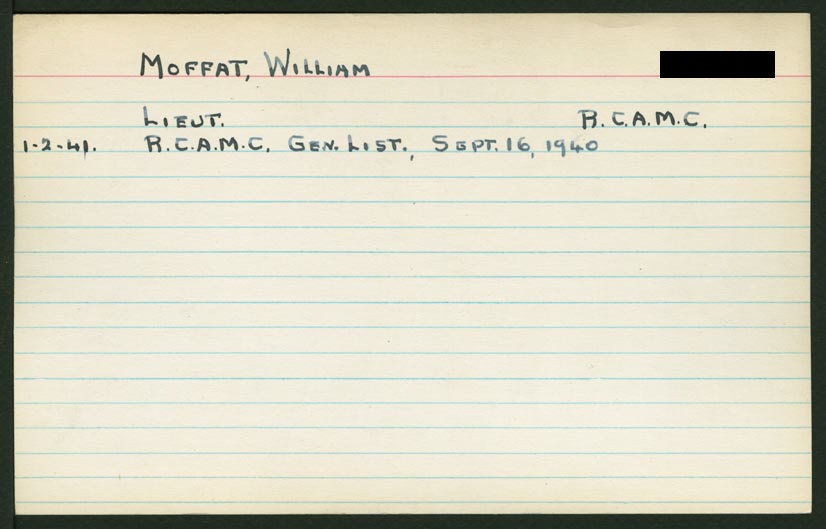 MOFFAT, WILLIAM
LIEUT. R.C.A.M.C.
1-2-41. R.C.A.M.C. GEN. LIST., SEPT. 16, 1940